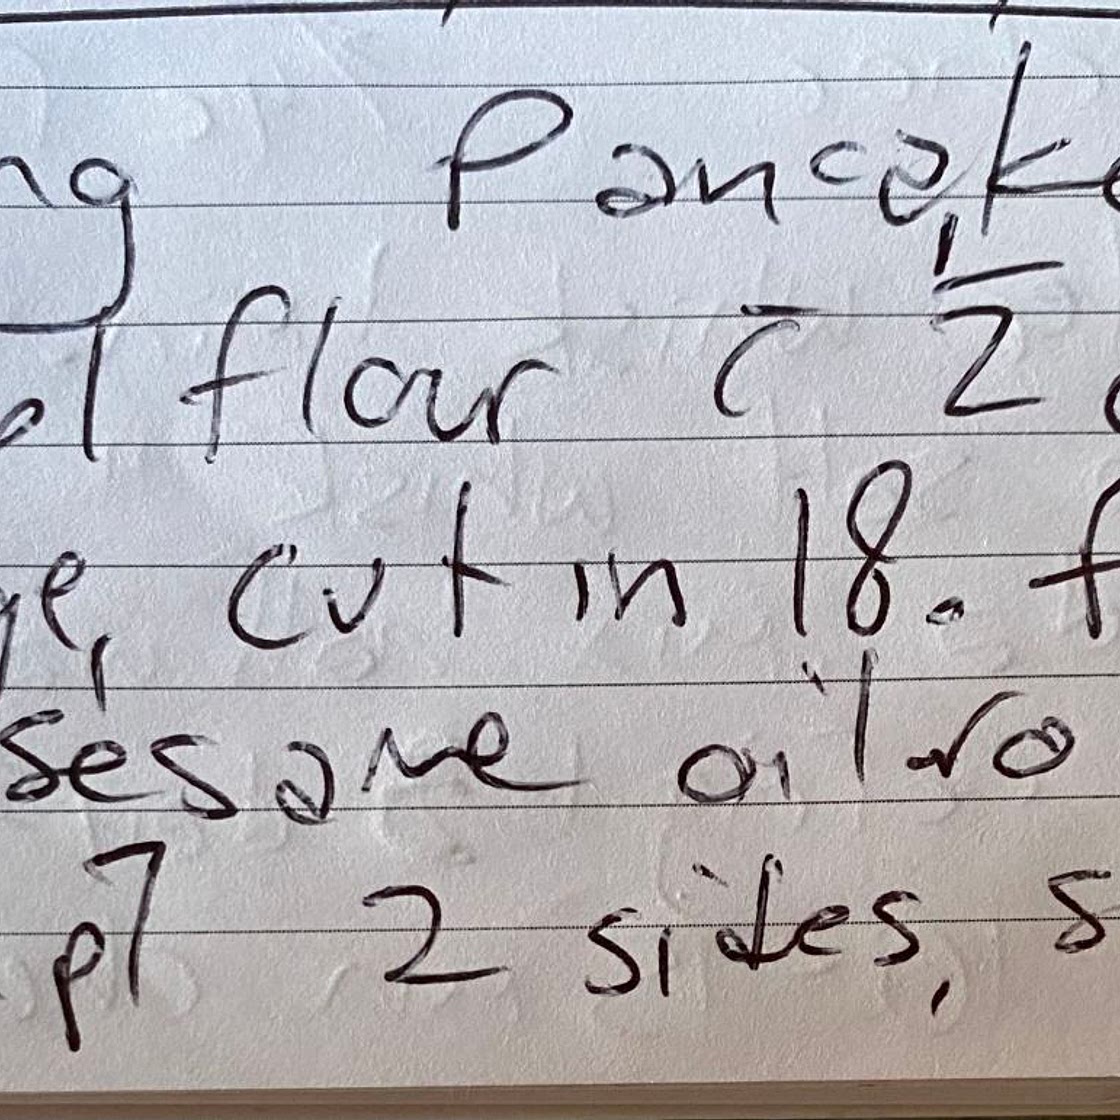 ng Pancake
el flour c̄ 1/2 c
ge, cut in 18. f
sesame oil ro
p7 2 sides, s